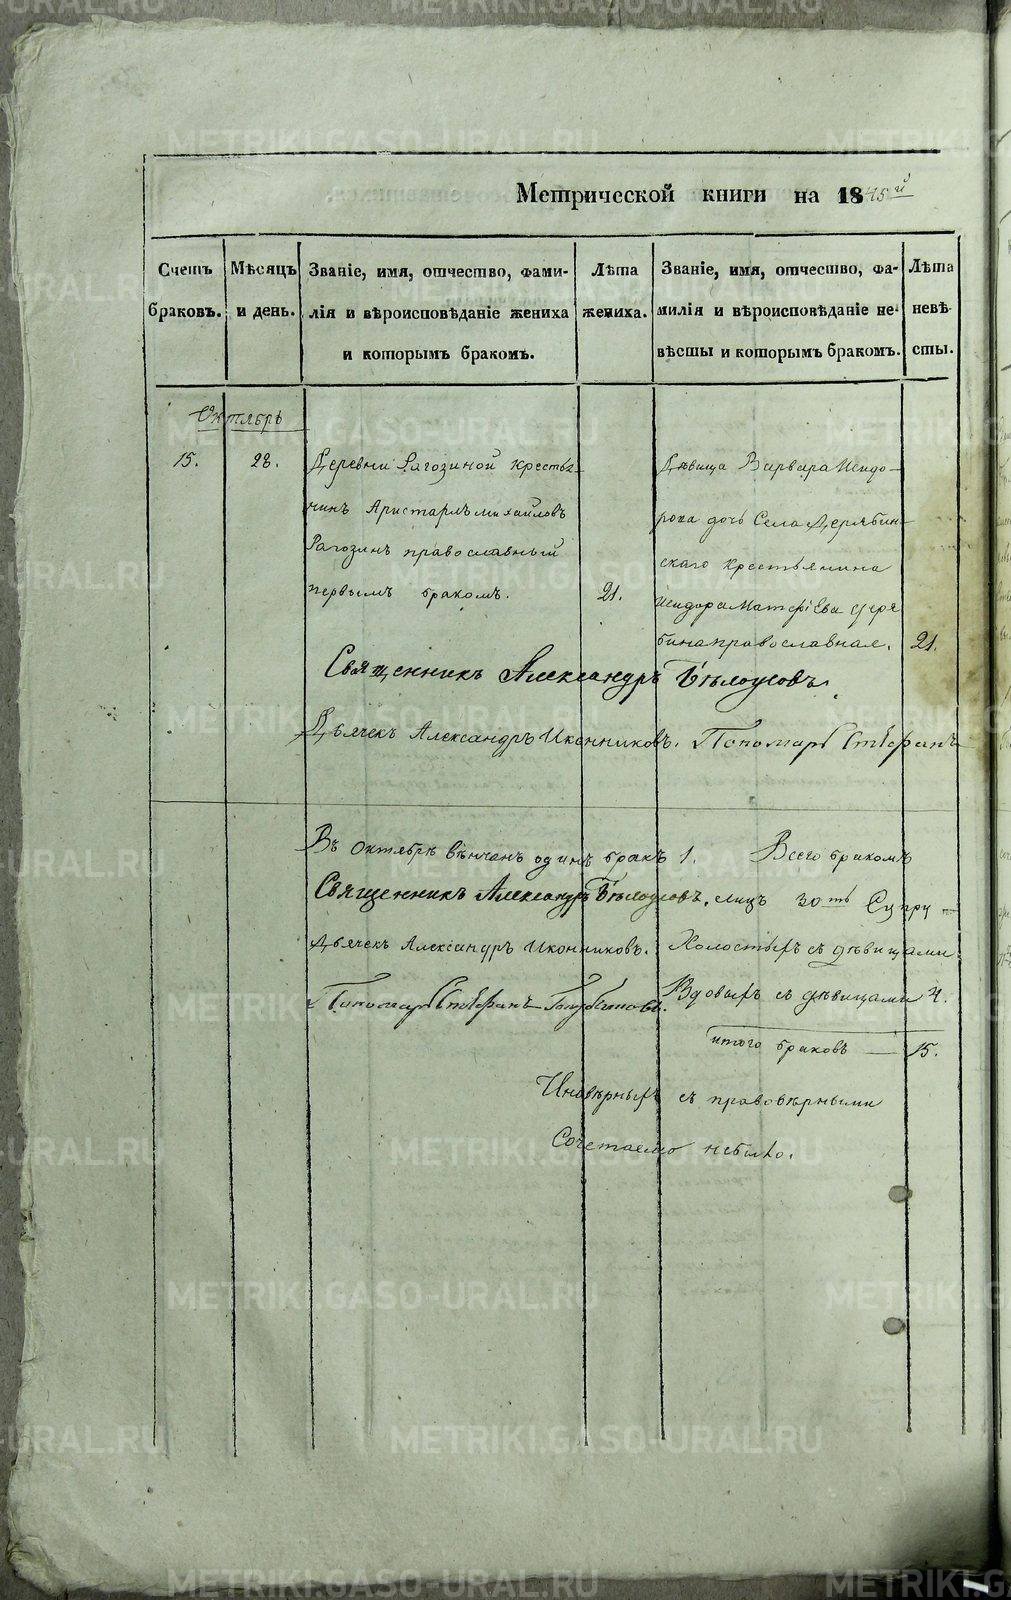 Метрической книги на 1845й
Счетъ браковъ.
Мѣсяцъ и день.
Званіе, имя, отчество, фами-
лія и вѣроисповѣданіе жениха
и которымъ бракомъ.
Лѣта жениха.
Званіе, имя, отчество, фа-
милія и вѣроисповѣданіе не-
вѣсты и которымъ бракомъ.
Лѣта невѣ-
сты.
Октябрь
15.
28.
Деревни Рагозиной крестья-
нинъ Аристархъ михайловъ
Рагозинъ православный
первымъ бракомъ.
21.
Дѣвица Варвара Исидо-
рова дочь Села Дерябин-
скаго крестьянина
Исидора Матфіева Деря
бина православная.
21.
Священникъ Александръ Бѣлоусовъ.
Дьячекъ Александръ Иконниковъ. Пономарь Стефанъ
Въ октябрѣ вѣнчанъ одинъ бракъ 1.
Священникъ Александръ Бѣлоусовъ.
Дьячекъ Александръ Иконниковъ.
Пономарь Стефанъ
Всего бракомъ
лицъ 30ть Супру-
Холостыхъ съ дѣвицами
Вдовыхъ съ дѣвицами 4.
итого браковъ — 15.
Иновѣрныхъ съ правовѣрными
Сочетаемо небыло.
METRIKI.GASO-URAL.RU